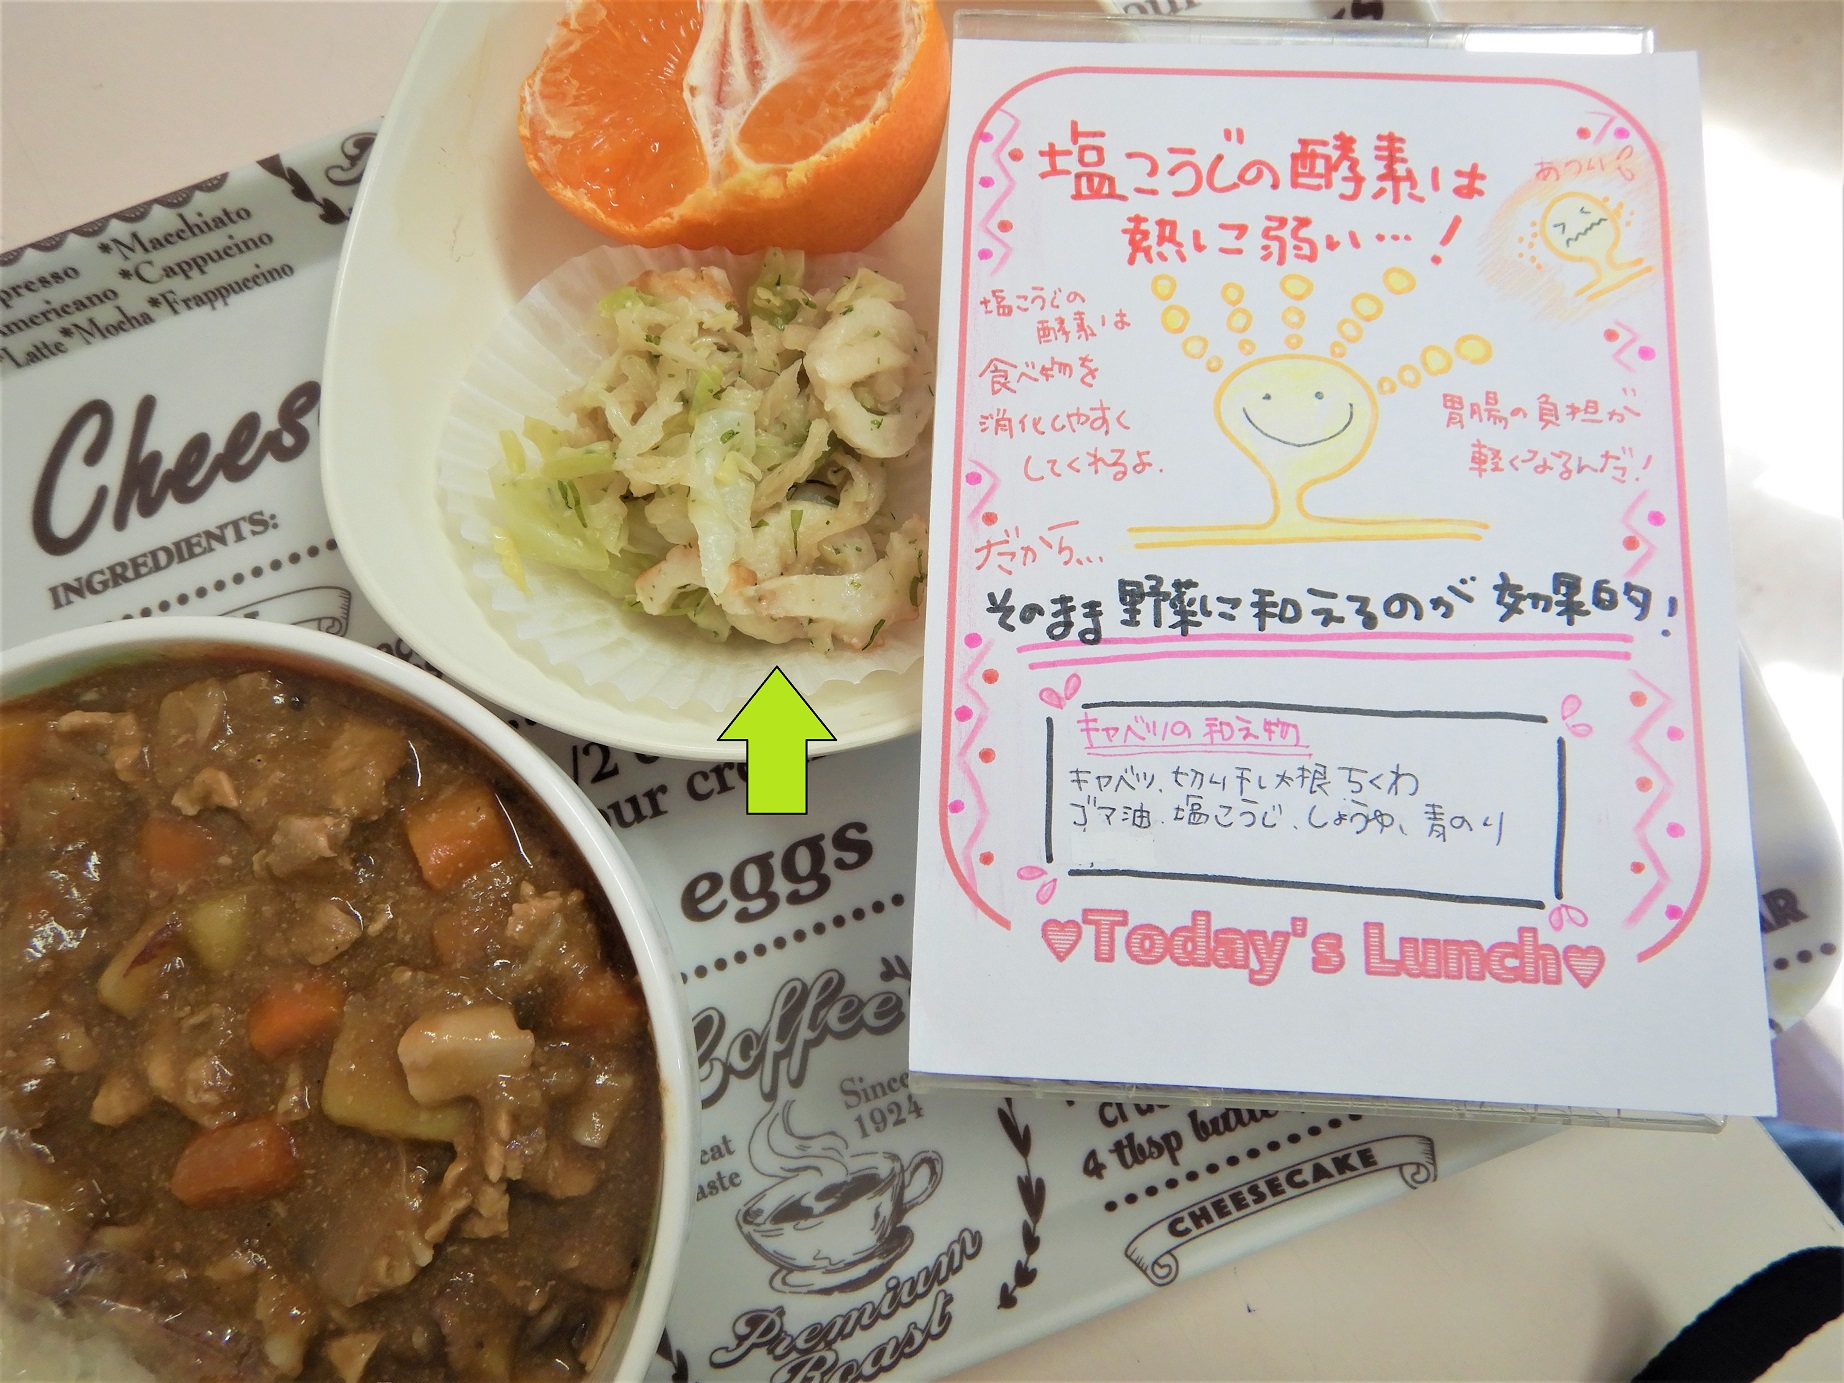 *Macchiato
presso *Cappucino
Americano *Frappuccino
*Latte *Mocha
Chees
INGREDIENTS:
/2 c
our cr
eggs
Coffee
Since
1924
eat
aste
Premium
Roast
塩こうじの酵素は
熱に弱い…!
あつい
塩こうじの
酵素は
食べ物を
消化しやすく
してくれるよ.
胃腸の負担が
軽くなるんだ!
だから…
そのまま野菜に和えるのが効果的!
キャベツの和え物
キャベツ、切り干し大根 ちくわ
ゴマ油、塩こうじ、しょうゆ、青のり
♥Today's Lunch♥
4 tbsp butte
CHEESECAKE